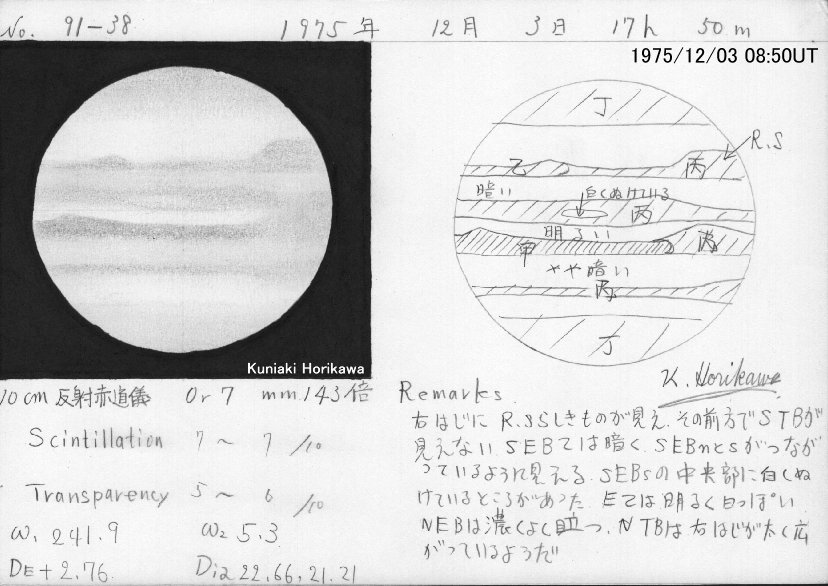 No. 91-38 1975年 12月 3日 17h 50m
1975/12/03 08:50UT
丁
R.S
乙
丙
暗い
白くぬけている
丙
明るい
甲
丙
やや暗い
丙
丁
Kuniaki Horikawa
K. Horikawa
10cm 反射赤道儀 Or 7 mm. 143倍
Scintillation 7 ~ 7 /10
Transparency 5 ~ 6 /10
ω1 241.9 ω2 5.3
DE + 2.76 Dia 22.66, 21.21
Remarks
右はじに R.Sらしきものが見え、その前方でSTBが
見えない. SEBZは暗く、SEBnとsがつなが
っているように見える. SEBsの中央部に白くぬ
けているところがあった. EZは明るく白っぽい
NEBは濃くよく目立つ. NTBは右はじが太く広
がっているようだ